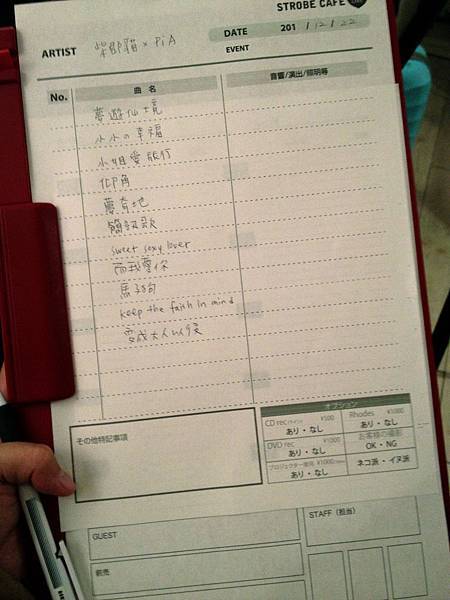 STROBE CAFE
DATE 201 / 12 / 22
ARTIST 柴郡貓 × PiA
EVENT
No. 曲名 音響/演出/照明等
夢遊仙境
小小の幸福
小姐愛旅行
仰角
簡單歌
sweet sexy lover
而我愛你
keep the faith in mind
變成大人以後
オプション
CD rec ¥500 Rhodes ¥1000
あり・なし あり・なし
DVD rec ¥1000 お客様の撮影
あり・なし OK・NG
プロジェクター使用 ¥1000
あり・なし ネコ派・イヌ派
その他特記事項
GUEST
STAFF(担当)
前売